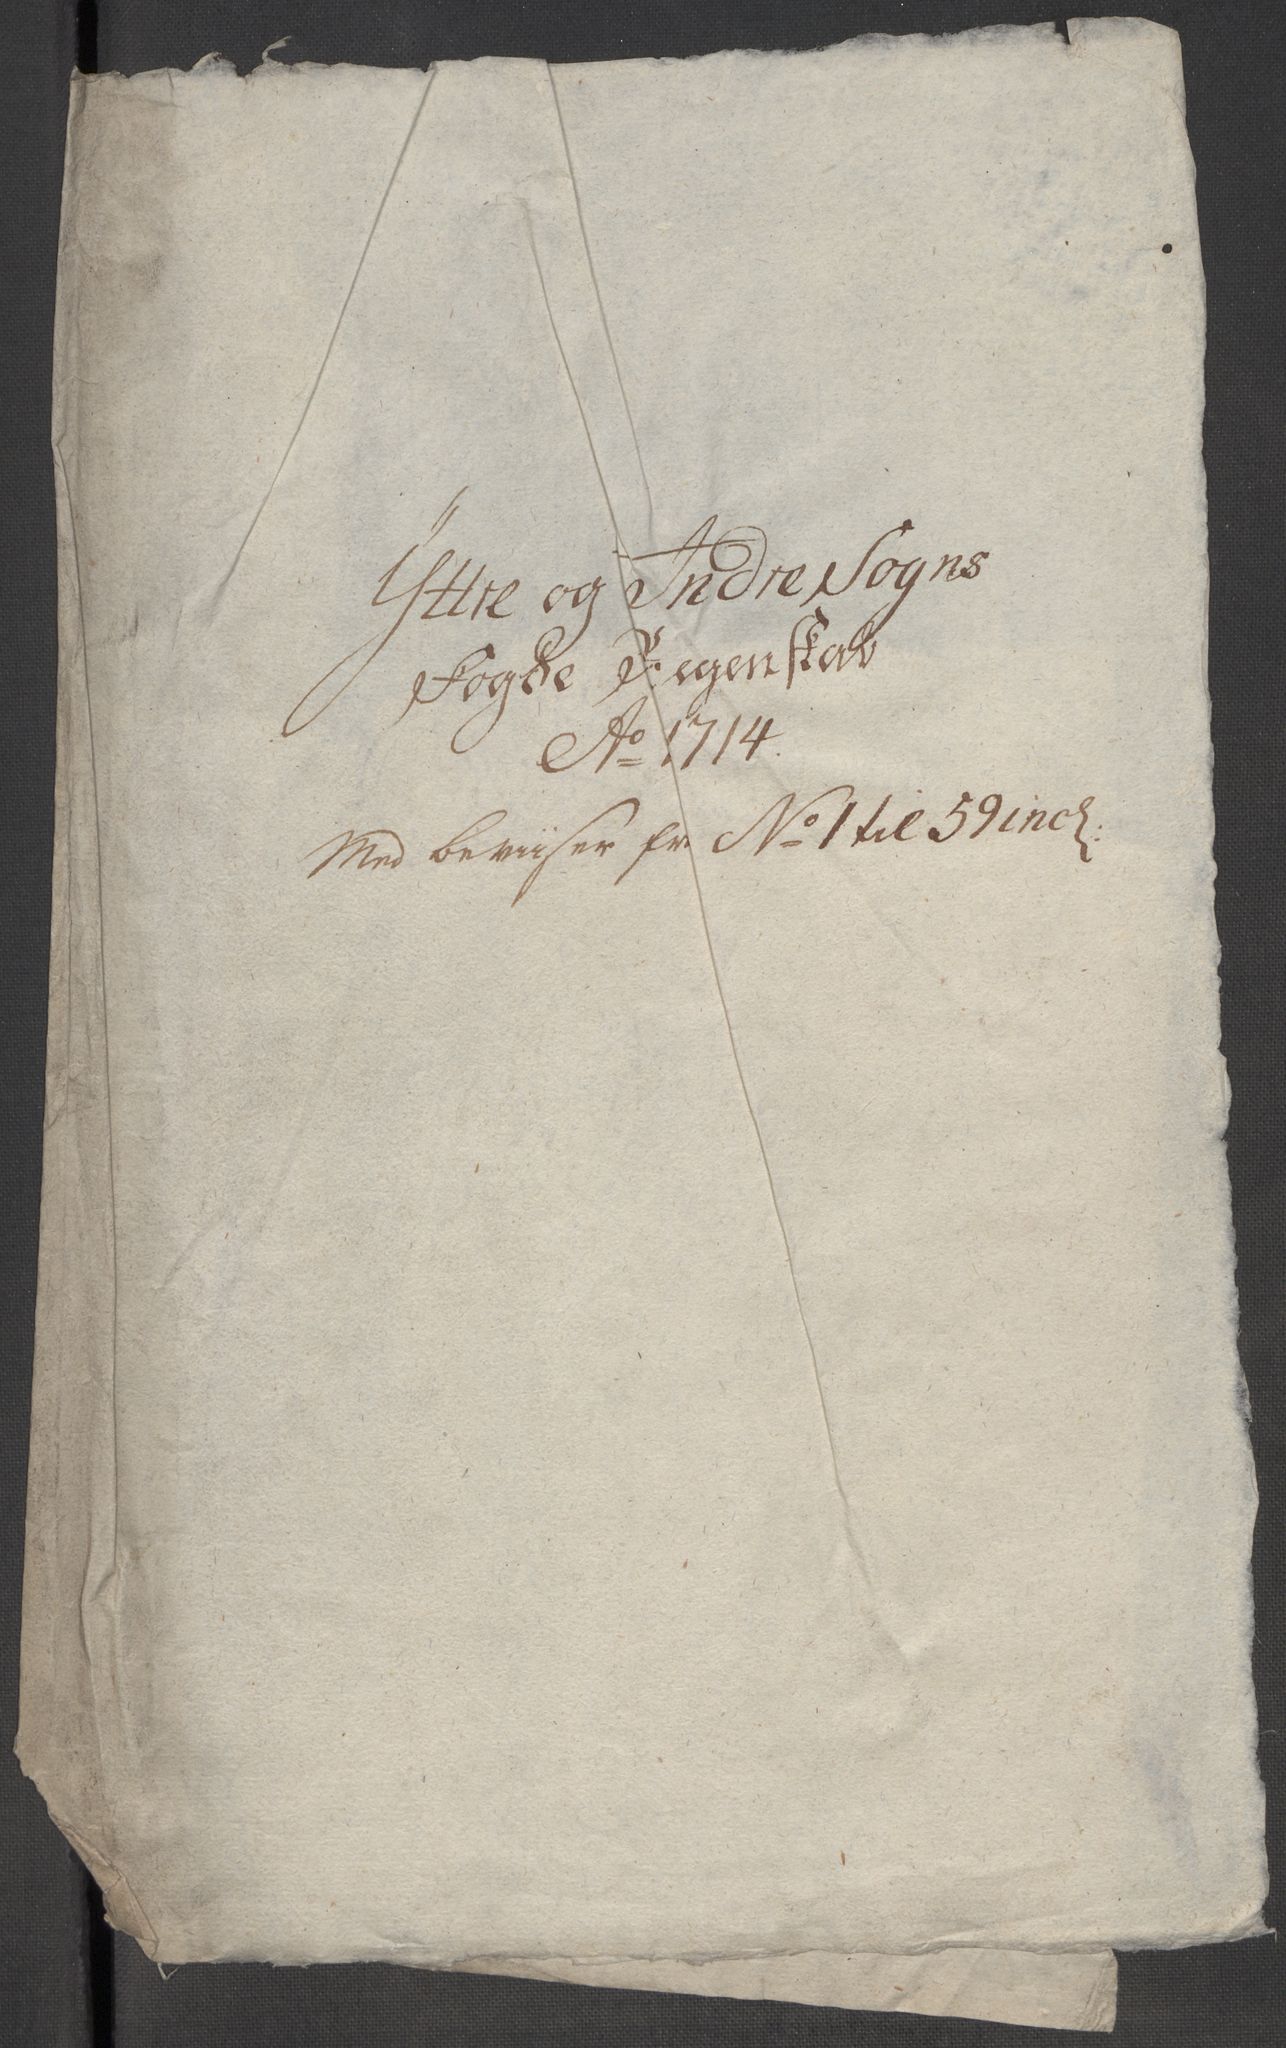 Ÿttre og Indre Sogns
Fogde Regenskab
Ao 1714.
Med beviiser fr No 1 til 59 incl: